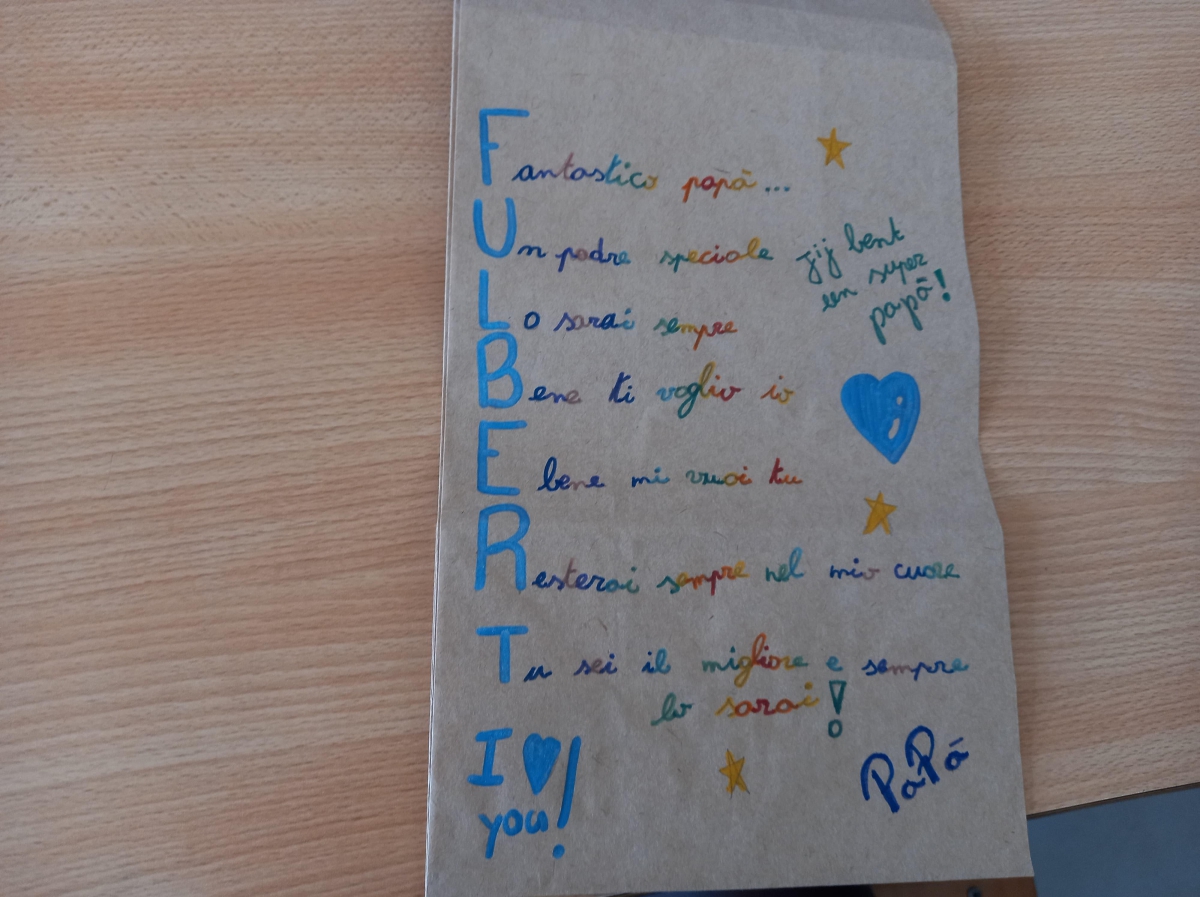 Fantastico papà...
Un padre speciale
jij bent
een super
papà!
Lo sarai sempre
Bene ti voglio io
E bene mi vuoi tu
Resterai sempre nel mio cuore
Tu sei il migliore e sempre
lo sarai!
I ♥
you!
PaPà